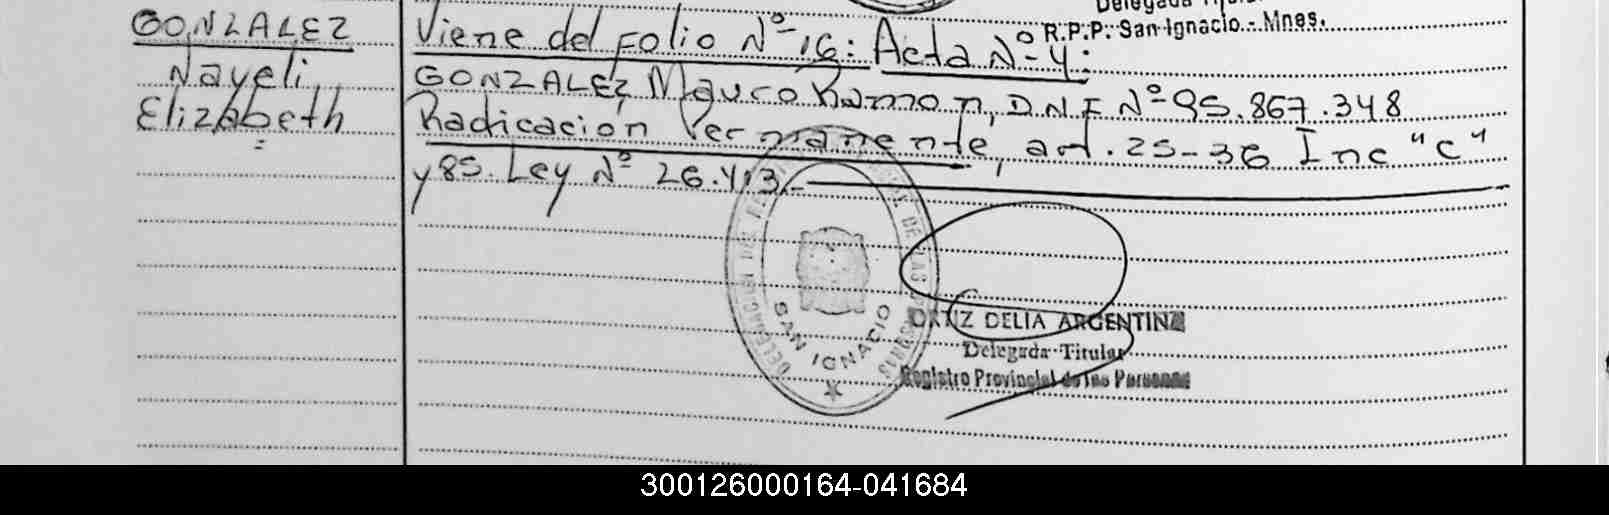 Delegada Titular
R.P.P. San Ignacio - Mnes.
GONZALEZ
Nayeli
Elizabeth
Viene del Folio Nº 16: Acta Nº 4:
GONZALEZ, Mauro Ramon, D.N.I Nº 95.867.348
Radicación Permanente, art. 25-36 Inc "c"
y 85. Ley Nº 26.413.-
DELEGACION DEL REG. DE LAS PERSONAS
SAN IGNACIO
ORTIZ DELIA ARGENTINA
Delegada Titular
Registro Provincial de las Personas
300126000164-041684